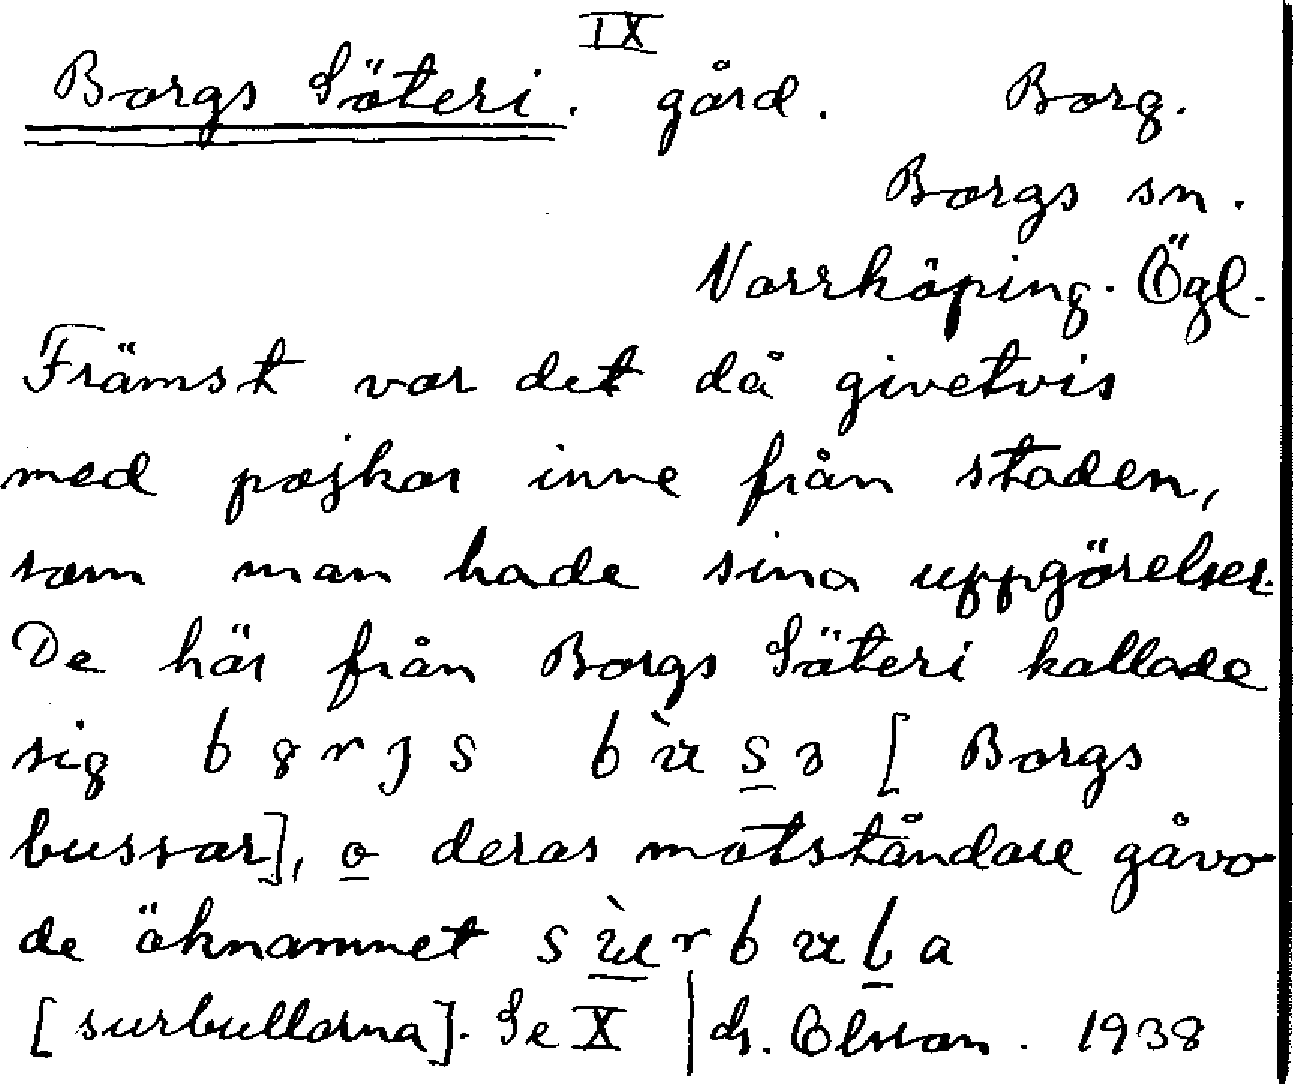 IX
Borgs Säteri. gård. Borg.
Borgs sn.
Norrköping. Ögl.
Främst var det då givetvis
med pojkar inne från staden,
som man hade sina uppgörelser.
De här från Borgs Säteri kallade
sig [Borgs
bussar], o deras motståndare gåvo
de öknamnet
[surbullarna]. Se X | Olsson. 1938